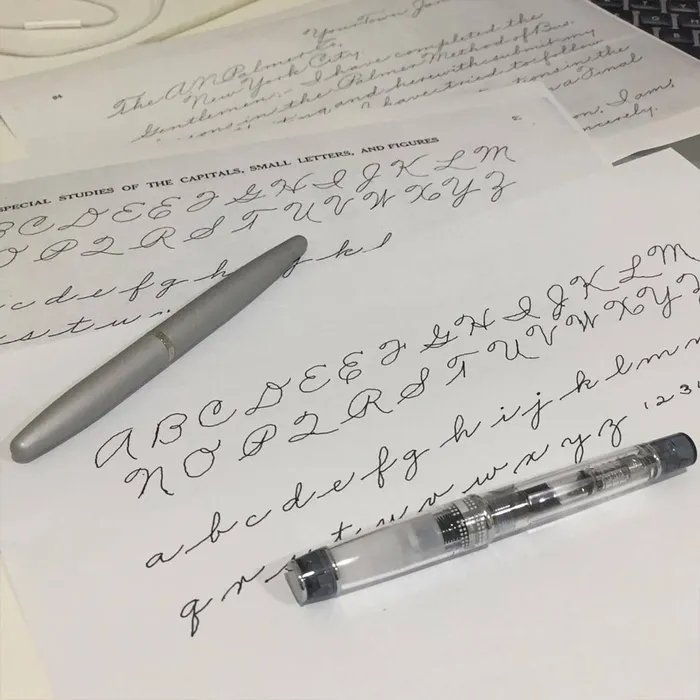 Your Town, Jan
The A.N. Palmer Co.
New York City.
Gentlemen,- I have completed the
ons in the Palmer Method of Bus.
ting and herewith submit my
I have tried to follow
tions in the
a Final
on. I am,
cerely,
SPECIAL STUDIES OF THE CAPITALS, SMALL LETTERS, AND FIGURES
B C D E E F G H I J K L M
O P Q R S T U V W X Y Z
c d e f g h j k l
s t u
A B C D E E F G H I J K L M
N O P Q R S T U V W X Y Z
a b c d e f g h i j k l m n
q r s t u v w x y z 1 2 3